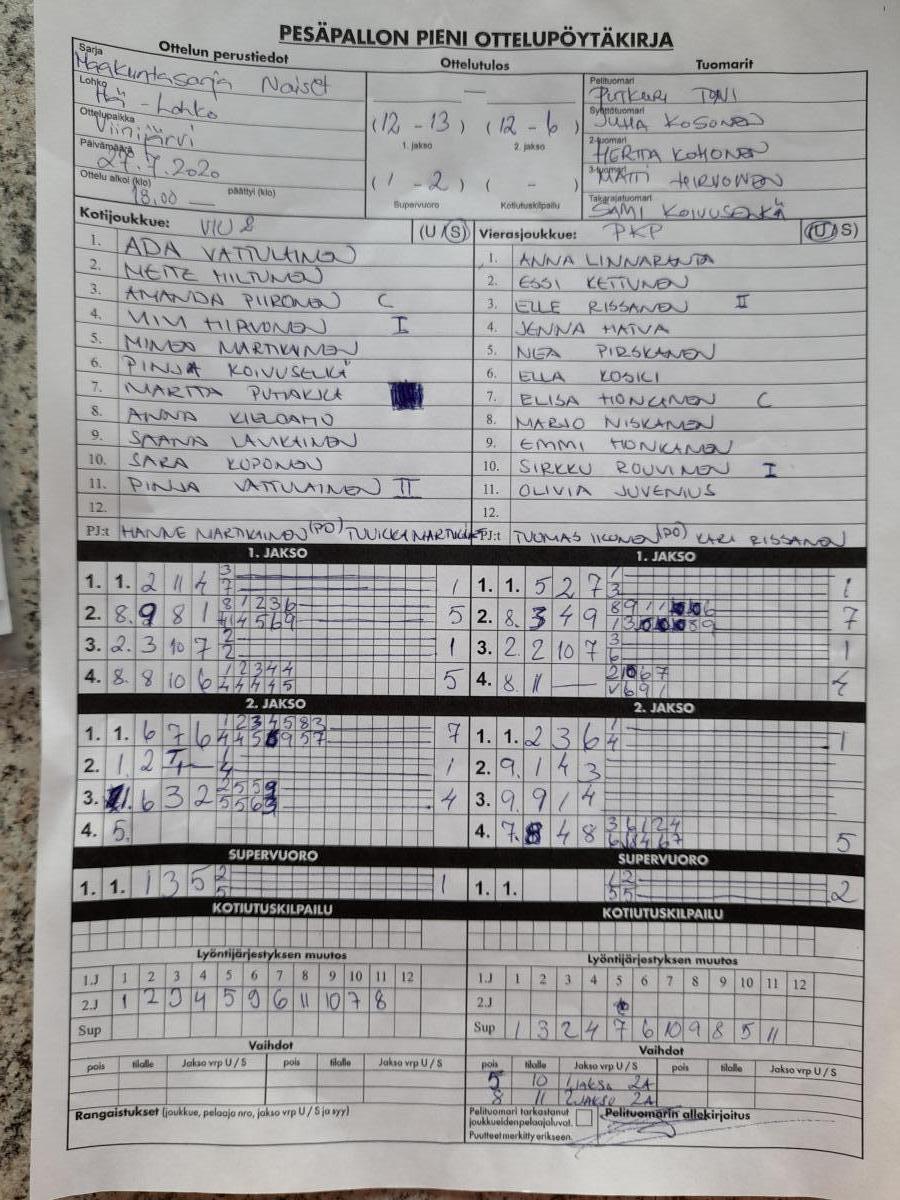 PESÄPALLON PIENI OTTELUPÖYTÄKIRJA
Ottelun perustiedot Ottelutulos Tuomarit
Sarja Maakuntasarja Naiset
Lohko Itä - Lohko
Ottelupaikka Viinijärvi
Päivämäärä 27.7.2020
Ottelu alkoi (klo) 18.00 päättyi (klo)
(12 - 13) (12 - 6)
1. jakso 2. jakso
(1 - 2) ( - )
Supervuoro Kotiutuskilpailu
Pelituomari PUTKURI TONI
Syöttötuomari JUHA KOSONEN
2-tuomari HERTTA KOHONEN
3-tuomari MATTI HIRVONEN
Takarajatuomari SAMI KOIVUSELKÄ
Kotijoukkue: (U/S) Vierasjoukkue: PKP (U/S)
1. ADA VATTULAINEN
2. NETTE HILTUNEN
3. AMANDA PIIRONEN C
4. MIMI HIRVONEN I
5. MINEA MARTIKAINEN
6. PINJA KOIVUSELKÄ
7. MARTTA PUHAKKA
8. ANNA KIELOAHO
9. SAANA LAVIKAINEN
10. SARA KUPONEN
11. PINJA VATTULAINEN II
12.
PJ:t HANNE MARTIKAINEN (PO) TUULIKKI MARTIKAINEN
1. ANNA LINNARANTA
2. ESSI KETTUNEN
3. ELLE RISSANEN II
4. JENNA HATVA
5. NEA PIRSKANEN
6. ELLA KOSKI
7. ELISA HONKANEN C
8. MARJO NISKANEN
9. EMMI HONKANEN
10. SIRKKU ROUVINEN I
11. OLIVIA JUVENIUS
12.
PJ:t TUOMAS IIKONEN (PO) KARI RISSANEN
1. JAKSO 1. JAKSO
1. 1. 2 11 4 3 7 1
2. 8. 9 8 1 5
3. 2. 3 10 7 2 2 1
4. 8. 8 10 6 1 2 3 4 4 4 4 4 4 5 5
1. 1. 5 2 7 1 3 1
2. 8. 3 4 9 7
3. 2. 2 10 7 3 6 1
4. 8. 11 4
2. JAKSO 2. JAKSO
1. 1. 6 7 6 7
2. 1. 2 1 4 1
3. 6 3 2 4
4. 5.
1. 1. 2 3 6 1 4 1
2. 9. 1 4 3
3. 9. 9 1 4
4. 7. 8 4 8 5
SUPERVUORO SUPERVUORO
1. 1. 1 3 5 2 5 1
1. 1. 1 2 5 5 2
KOTIUTUSKILPAILU KOTIUTUSKILPAILU
Lyöntijärjestyksen muutos Lyöntijärjestyksen muutos
1.J 1 2 3 4 5 6 7 8 9 10 11 12
2.J 1 2 3 4 5 9 6 11 10 7 8
Sup
1.J 1 2 3 4 5 6 7 8 9 10 11 12
2.J
Sup 1 3 2 4 7 6 10 9 8 5 11
Vaihdot Vaihdot
pois tilalle Jakso vrp U / S pois tilalle Jakso vrp U / S
pois tilalle Jakso vrp U / S pois tilalle Jakso vrp U / S
5 10 1 JAKSO 2A
8 11 2 JAKSO 2A
Rangaistukset (joukkue, pelaaja nro, jakso vrp U / S ja syy)
Pelituomari tarkastanut joukkueiden pelaajaluvat.
Puutteet merkitty erikseen.
Pelituomarin allekirjoitus